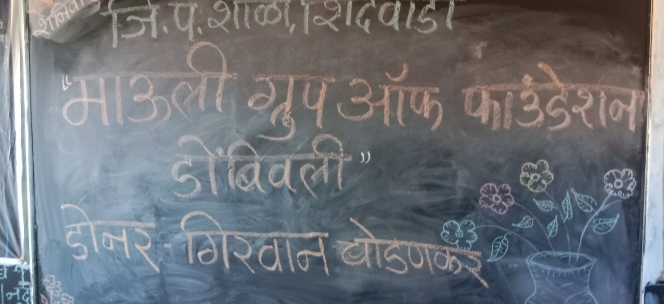 शनिवार
जि.प.शाळा, शिंदेवाडी
"माऊली ग्रुप ऑफ फाउंडेशन
डोंबिवली"
डोनर - गिरवान बोडणकर